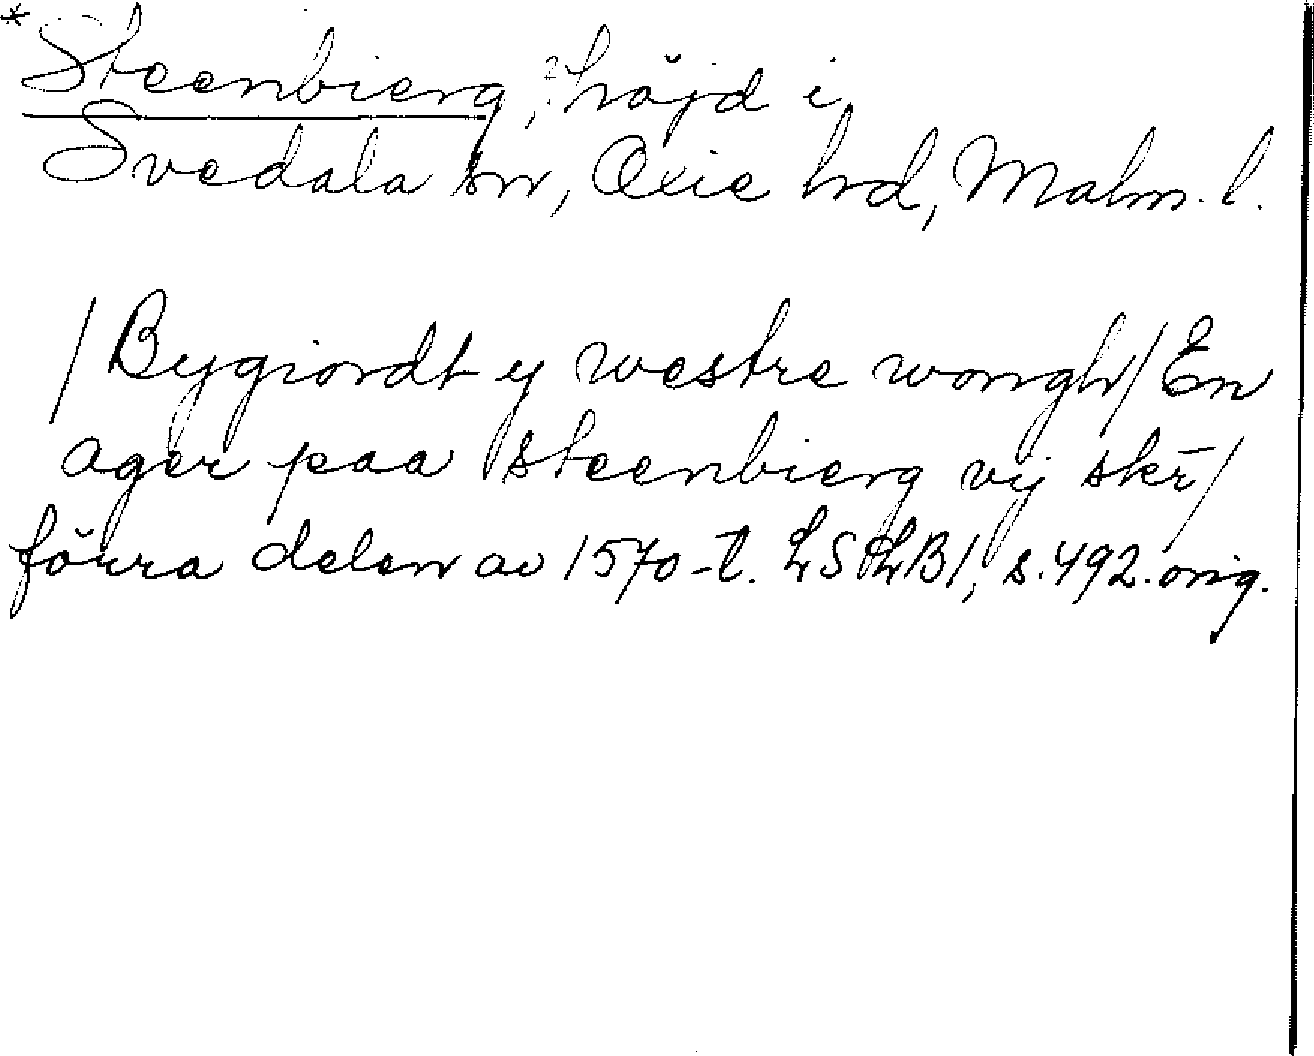 *Steenbierg, ?höjd i
Svedala sn, Oxie hd, Malm. l.
/Bygiordt y westre wongh/ En
ager paa steenbierg vij skr̄/
förra delen av 1570-t. LSLB1, s. 492. orig.